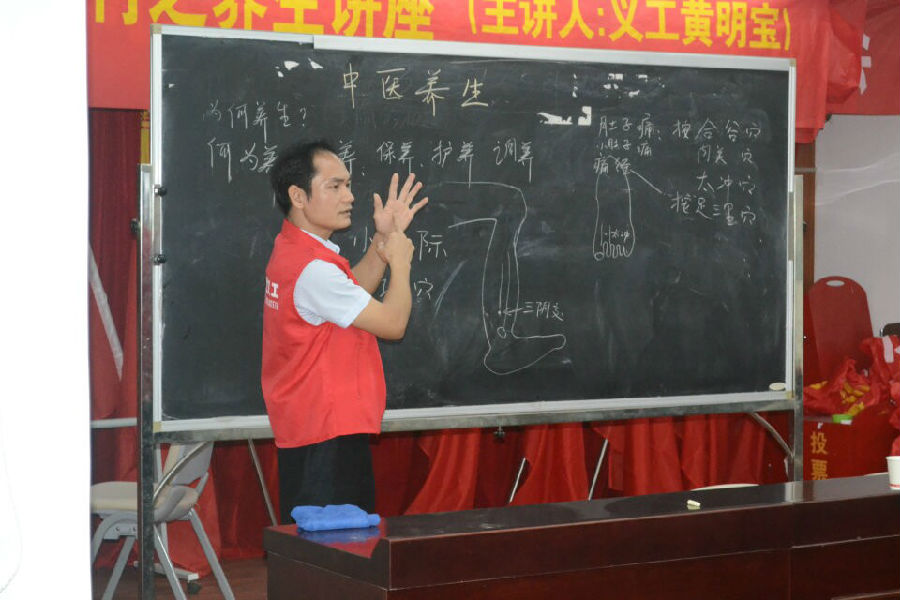 之养生讲座（主讲人:义工黄明宝）
中医养生
为何养生?
何为养 养、保养、护养 调养
肚子痛、按合谷穴
小肚子痛 内关穴
痛经 太冲穴
按足三里穴
太冲
小 际
穴
三阴交
工
投票